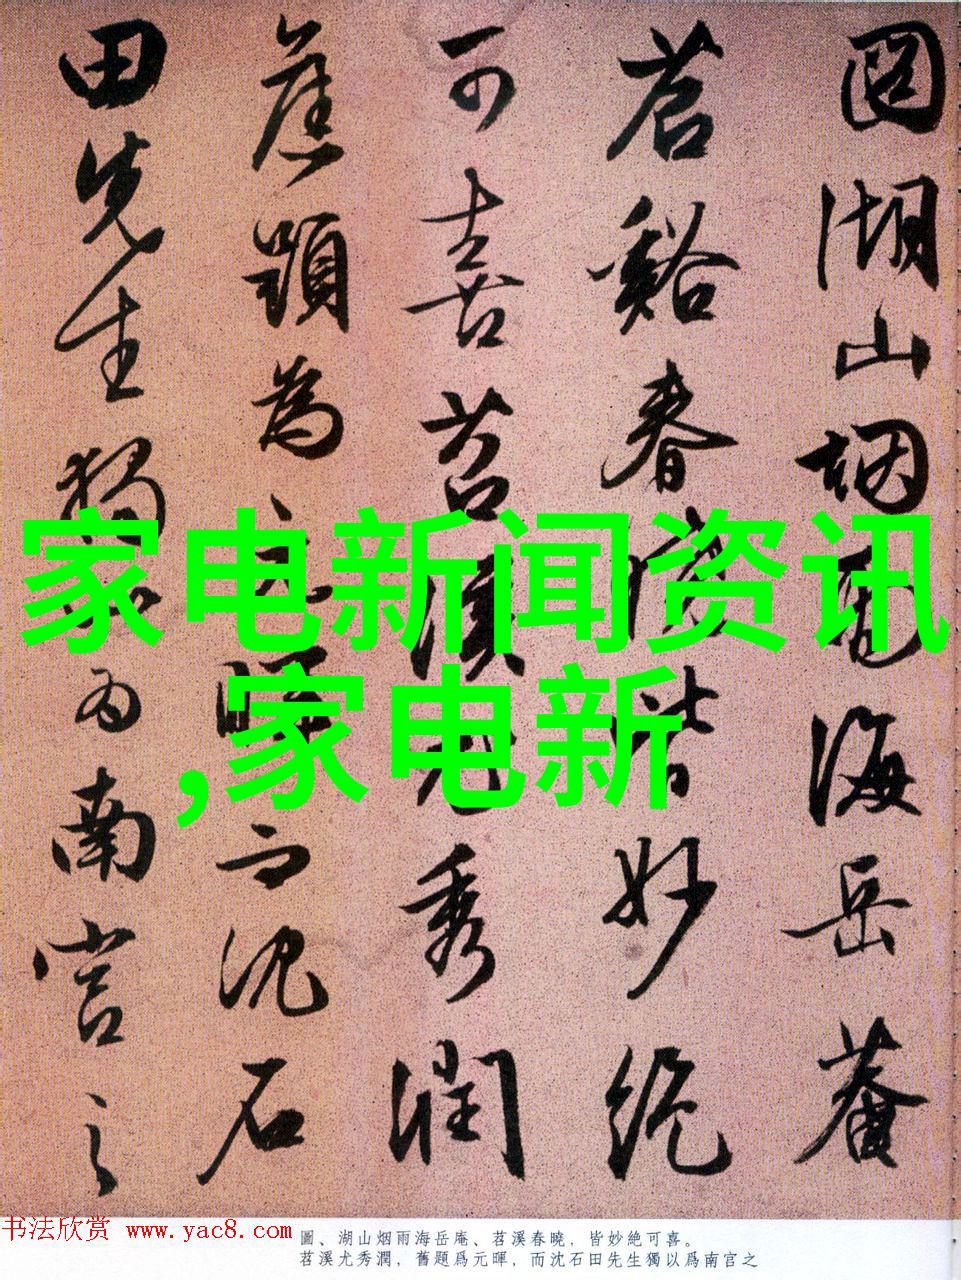 圖湖山烟雨海岳菴
苕谿春曉皆妙絶
可喜苕溪尤秀潤
舊題為元暉而沈石
田先生獨以為南宫之
家电新闻资讯
,家电新
书法欣赏 www.yac8.com
圖、湖山烟雨海岳庵、苕溪春曉，皆妙絶可喜。
苕溪尤秀潤，舊題爲元暉，而沈石田先生獨以爲南宫之